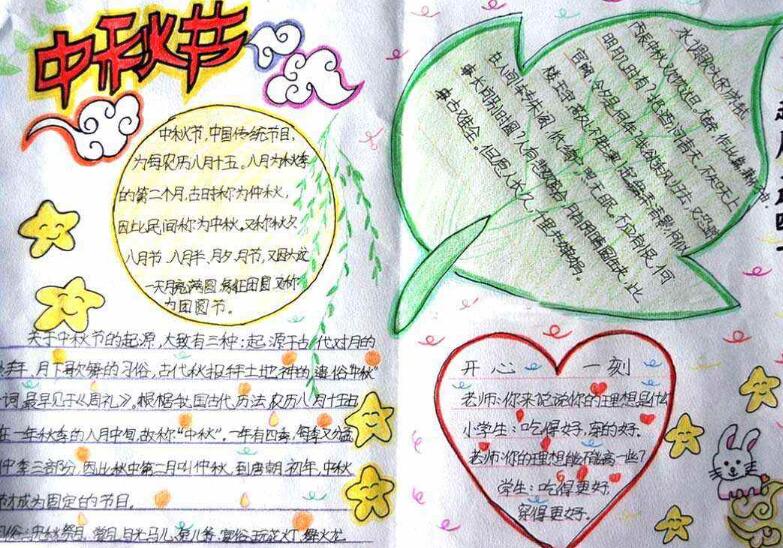 中秋节
中秋节，中国传统节目，
为每农历八月十五。八月为秋季
的第二个月，古时称为仲秋，
因此民间称为中秋。又称秋夕
八月节、八月半、月夕、月节，又因为这
一天月亮满圆，象征团圆，又称
为团圆节。
关于中秋节的起源，大致有三种：起源于古代对月的
月下歌舞的习俗，古代秋报拜土地神的遗俗"中秋"
一词，最早见于《周礼》。根据我国古代历法，农历八月十五日
在一年秋季的八月中旬，故称"中秋"。一年有四季，每季又分孟
仲季三部分，因此秋中第二月叫仲秋，到唐朝初年，中秋
成为固定的节目。
中秋祭月、赏月、月光马儿、兔儿爷、宴俗、玩花灯、舞火龙
水调歌头 宋 苏轼
丙辰中秋，欢饮达旦，大醉，作此篇，兼怀
明月几时有？把酒问青天。不知天上
宫阙，今夕是何年？我欲乘风归去，又恐琼
楼玉宇，高处不胜寒。起舞弄清影，何似
在人间！转朱阁，低绮户，照无眠。不应有恨，何
事长向别时圆？人有悲欢离合，月有阴晴圆缺，此
事古难全。但愿人长久，千里共婵娟。
开心一刻
老师：你来说说你的理想是什
小学生：吃得好，穿的好。
老师：你的理想能不能高一些？
学生：吃得更好，
穿得更好。